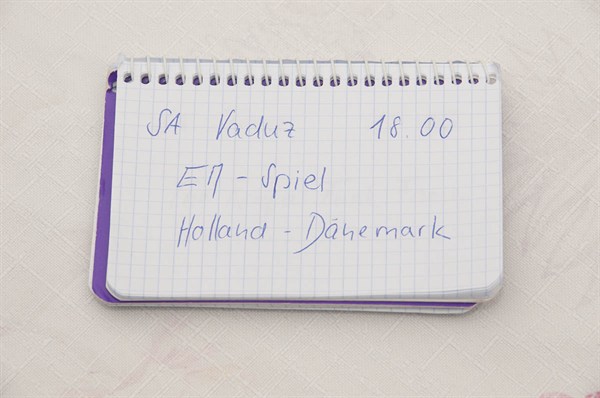 SA Vaduz 18.00
EM - Spiel
Holland - Dänemark